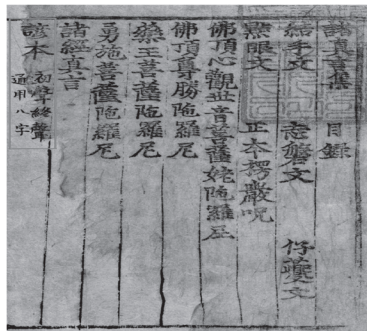 諸真言集 目録
結手文 志簷文 仔夔文
點眼文 正本楞嚴呪
佛頂心觀世音菩薩姥陁羅尼
佛頂尊勝陁羅尼
藥王菩薩陁羅尼
勇施菩薩陁羅尼
諸經真言
諺本 初聲終聲
通用八字